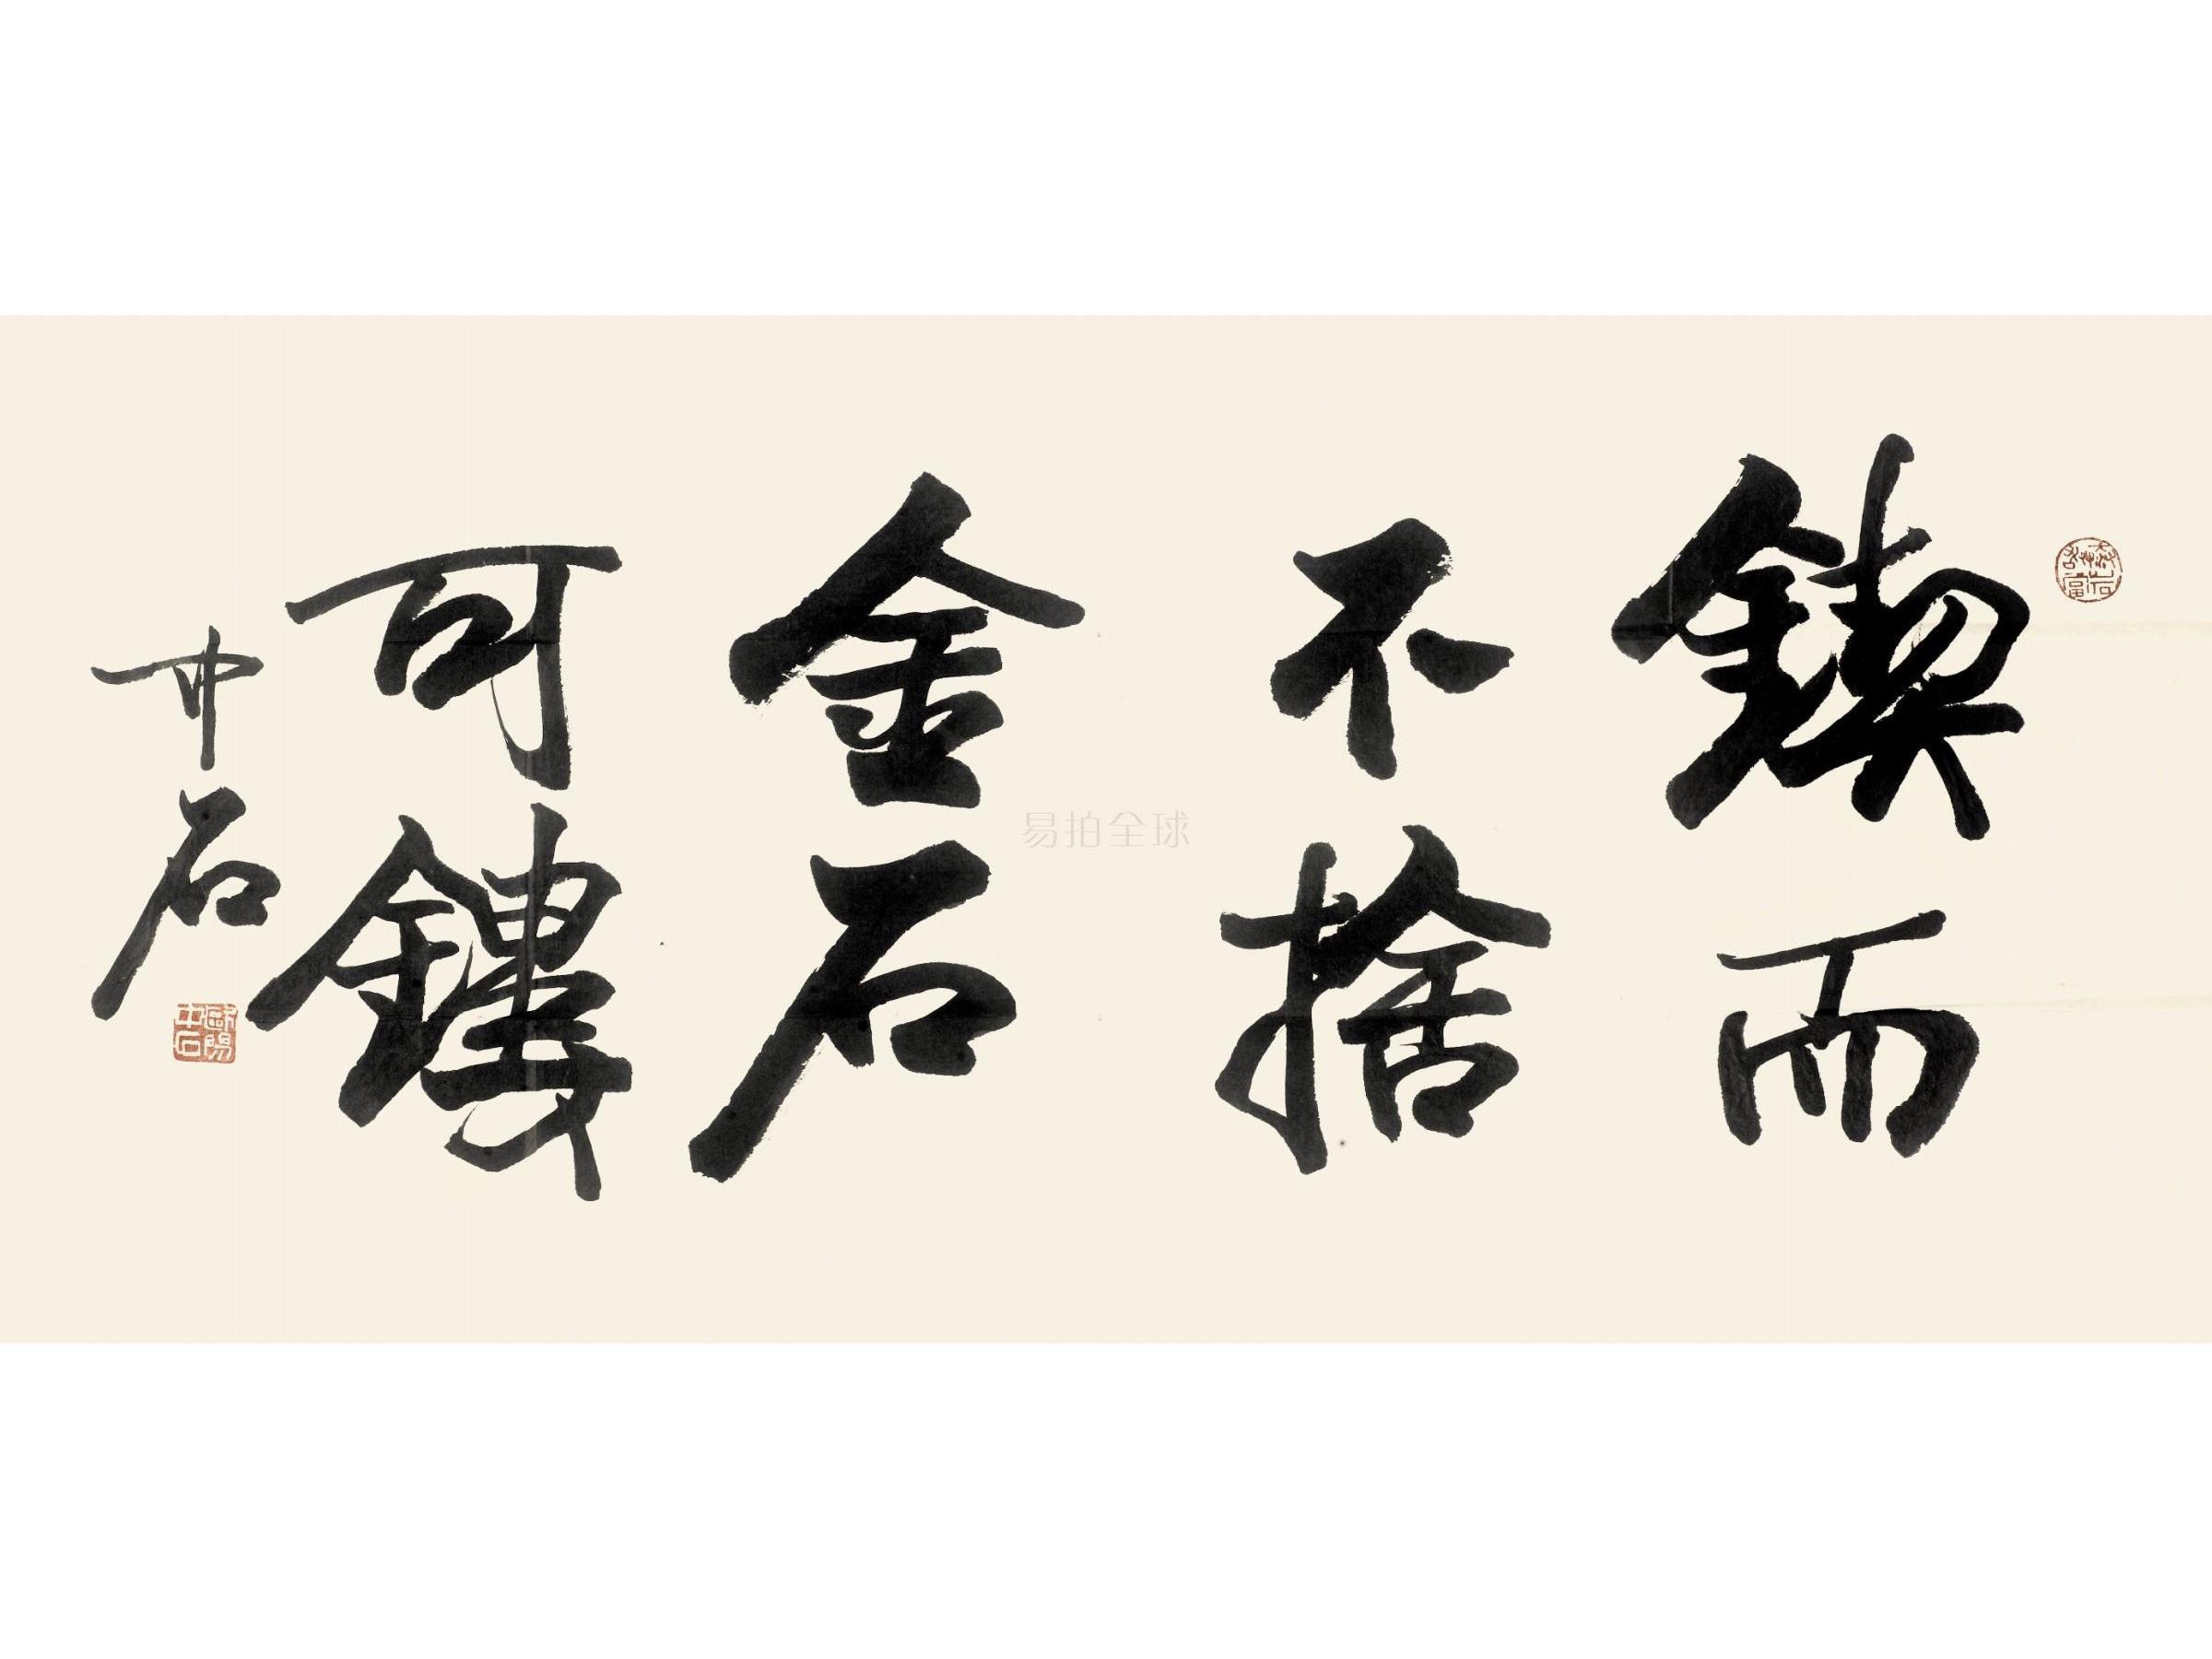 鍥而
不捨
金石
可鏤
中石
歐陽中石
易拍全球